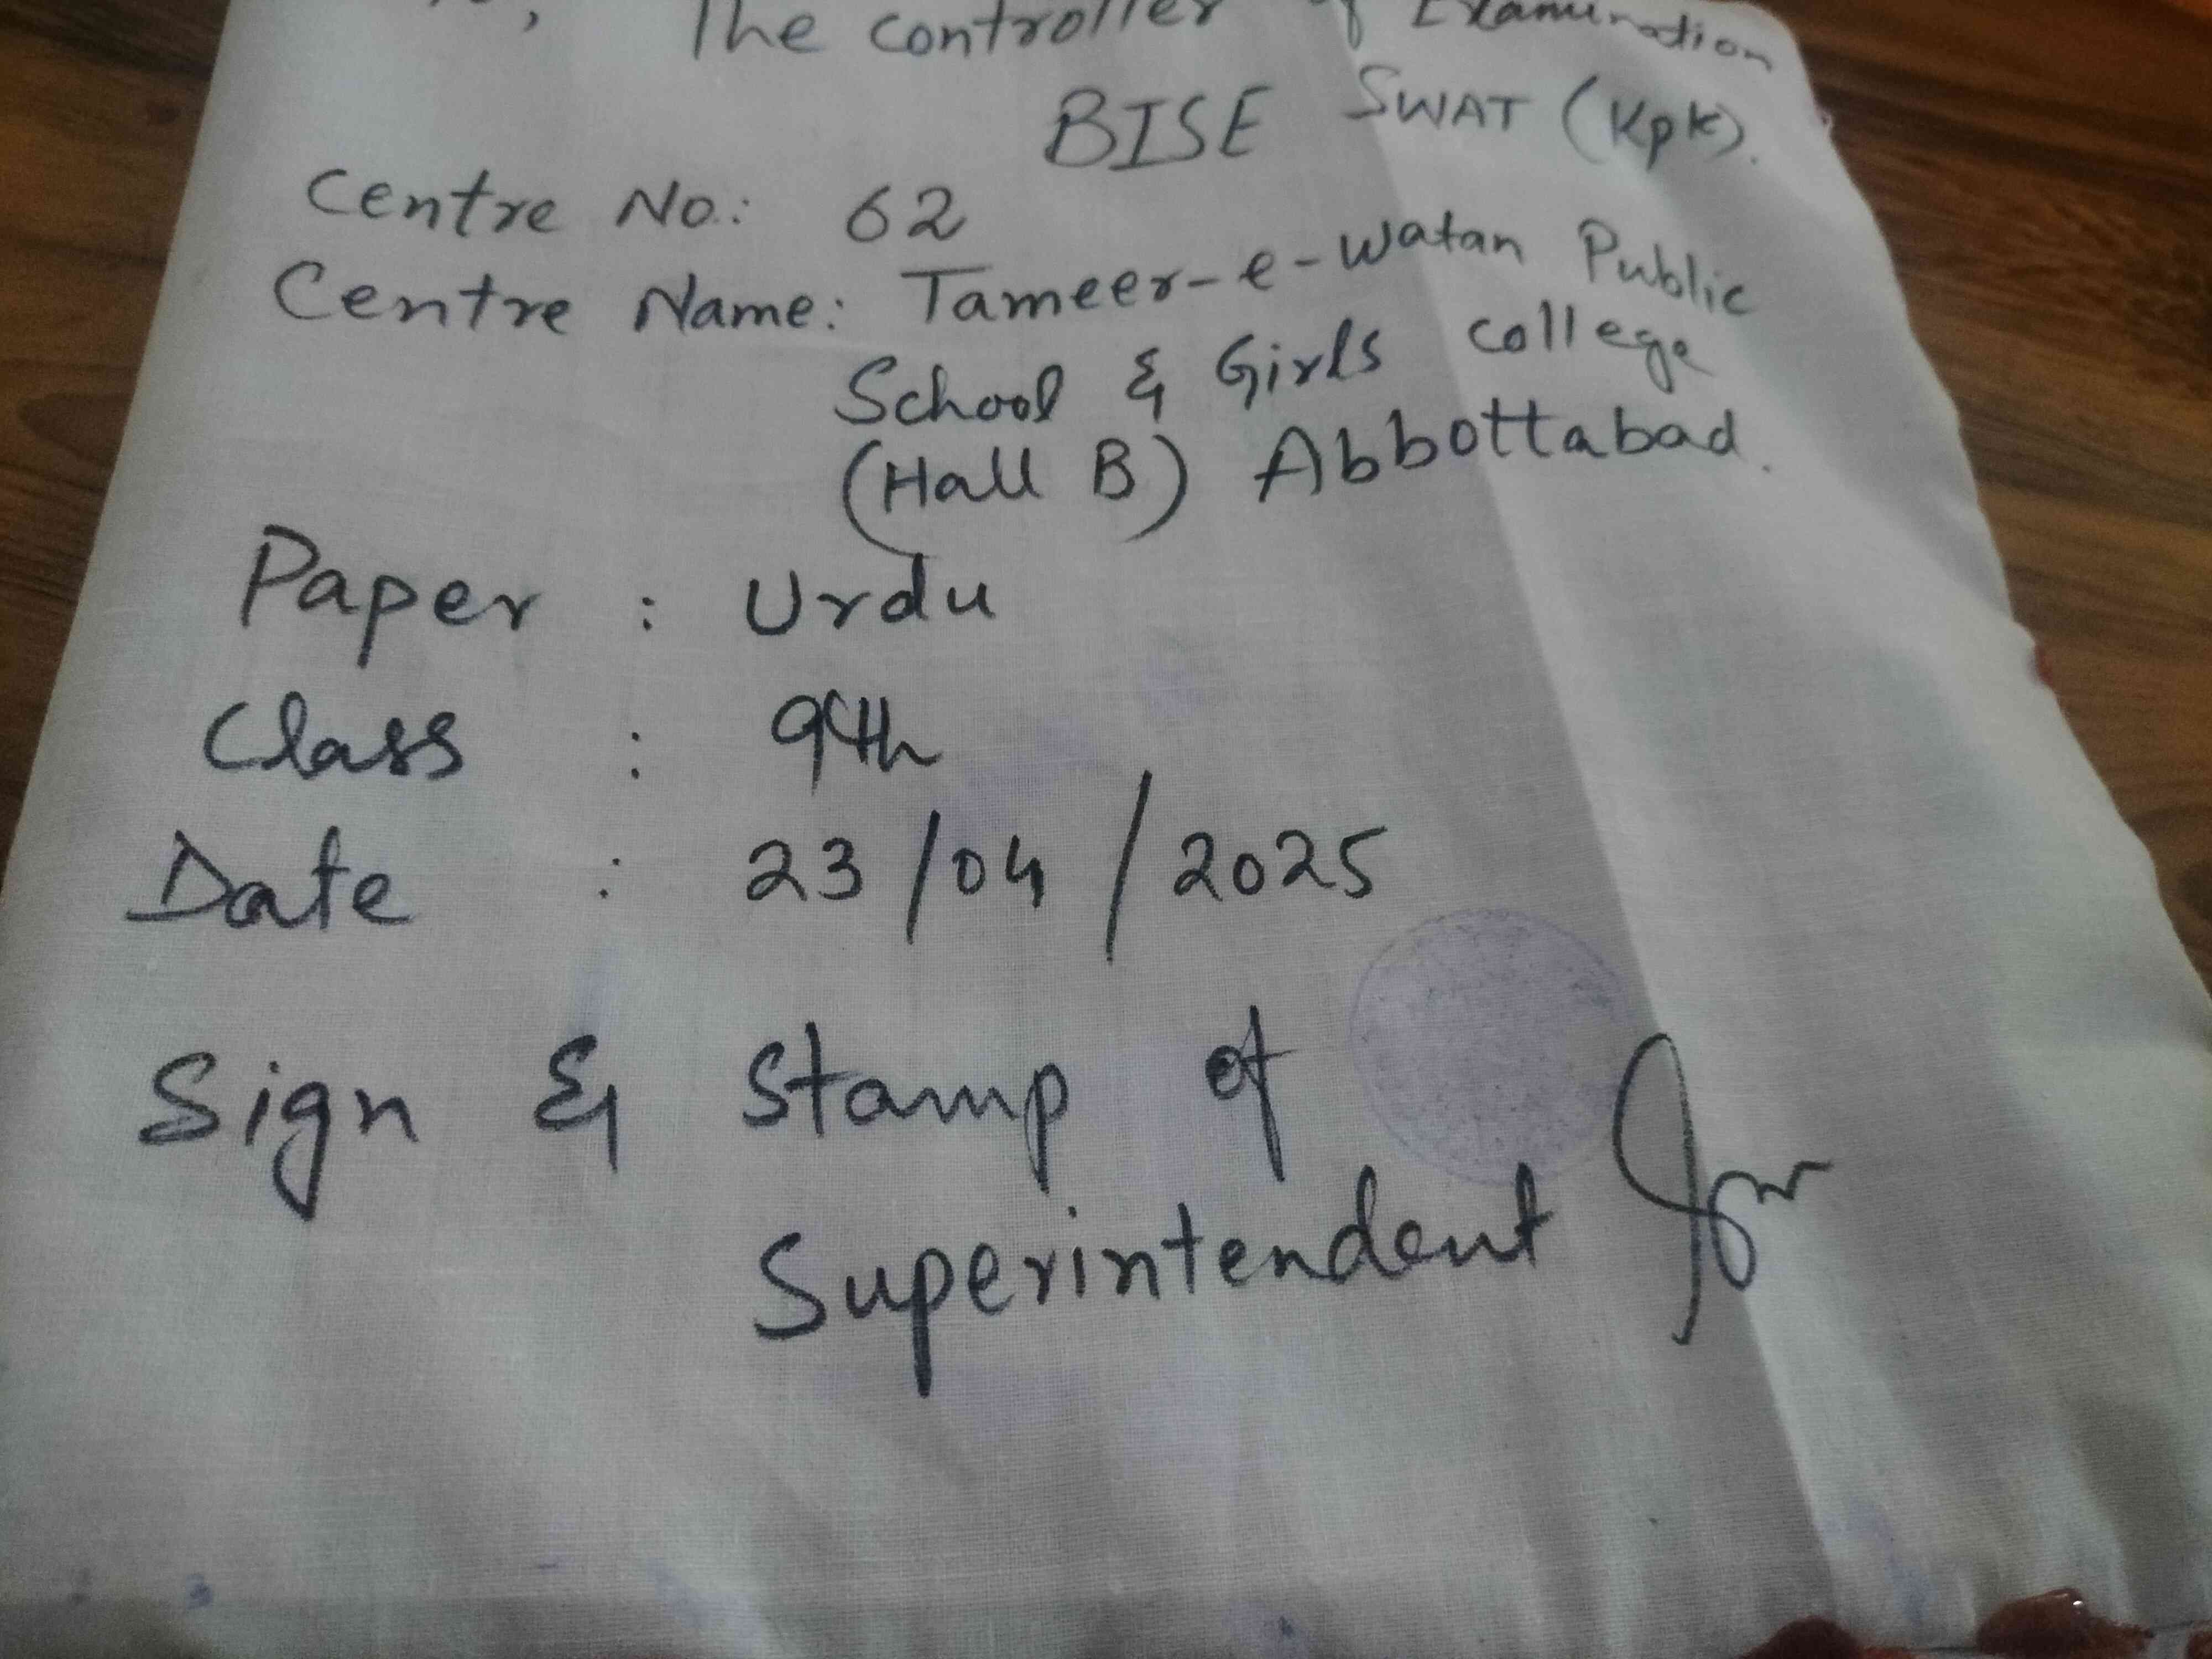 The controller of Examination
BISE SWAT (KPK).
Centre No.: 62
Centre Name: Tameer-e-Watan Public
School & Girls college
(Hall B) Abbottabad.
Paper : Urdu
Class : 9th
Date : 23/04/2025
Sign & Stamp of
Superintendent